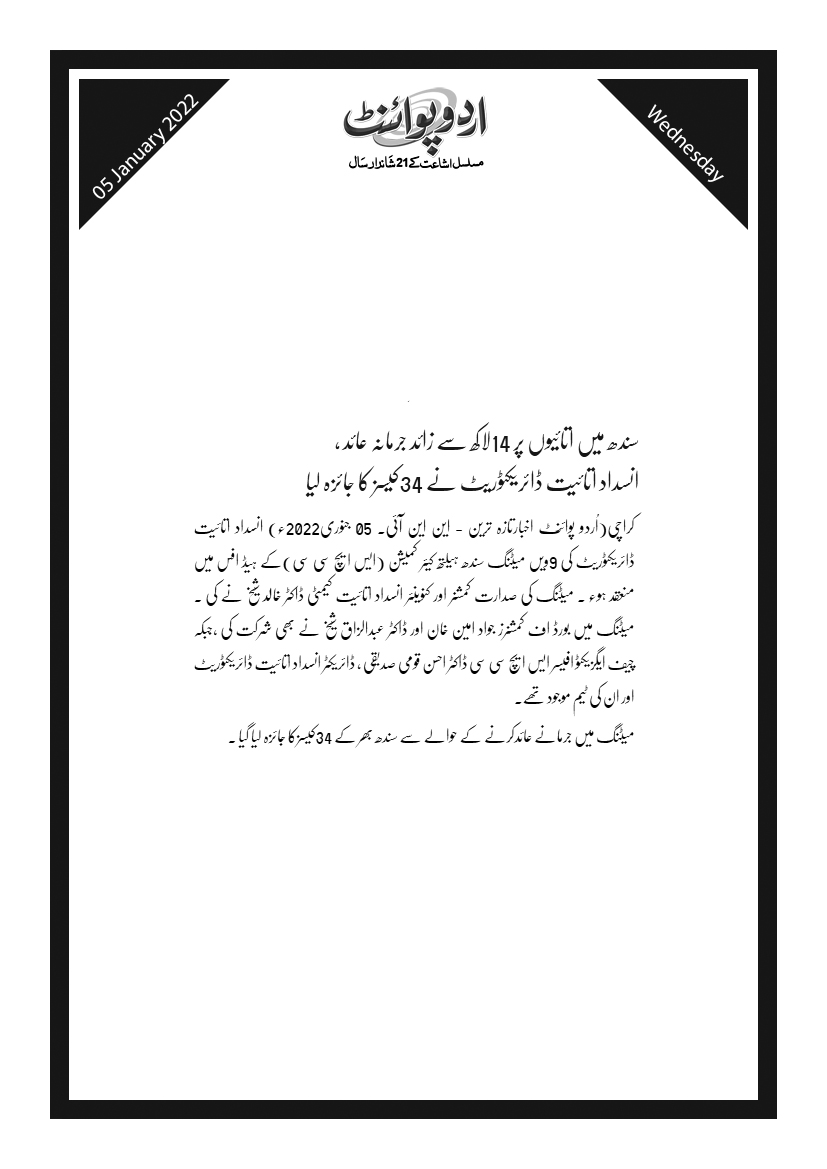 05 January 2022
Wednesday
اردو پوائنٹ
مسلسل اشاعت کے 21 شاندار سال
سندھ میں اتائیوں پر 14لاکھ سے زائد جرمانہ عائد ،
انسداد اتائیت ڈائریکٹوریٹ نے 34کیسز کا جائزہ لیا
کراچی(اُردو پوائنٹ اخبارتازہ ترین - این این آئی۔ 05 جنوری2022ء) انسداد اتائیت
ڈائریکٹوریٹ کی 9ویں میٹنگ سندھ ہیلتھ کیئر کمیشن (ایس ایچ سی سی)کے ہیڈ افس میں
منعقد ہوء ۔ میٹنگ کی صدارت کمشنر اور کنوینئر انسداد اتائیت کیمٹی ڈاکٹر خالد شیخ نے کی ۔
میٹنگ میں بورڈ اف کمشنرز جواد امین خان اور ڈاکٹر عبدالزاق شیخ نے بھی شرکت کی ،جبکہ
چیف ایگزیکٹوافیسر ایس ایچ سی سی ڈاکٹر احسن قومی صدیقی ، ڈائریکٹر انسداد اتائیت ڈائریکٹوریٹ
اور ان کی ٹیم موجود تھے۔
میٹنگ میں جرمانے عائدکرنے کے حوالے سے سندھ بھر کے 34کیسز کا جائزہ لیا گیا ۔